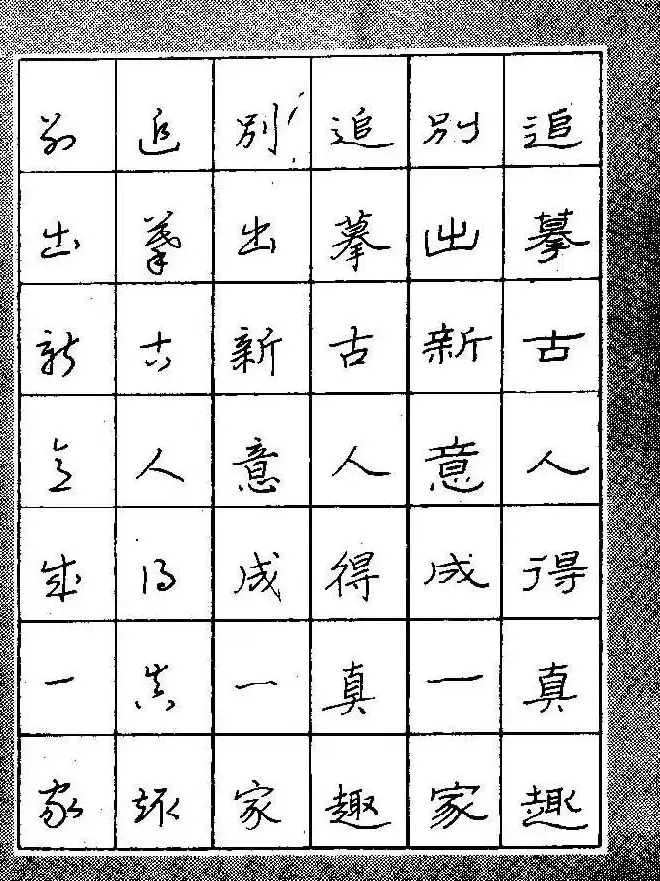 追摹古人得真趣
别出新意成一家
追摹古人得真趣
别出新意成一家
追摹古人得真趣
别出新意成一家